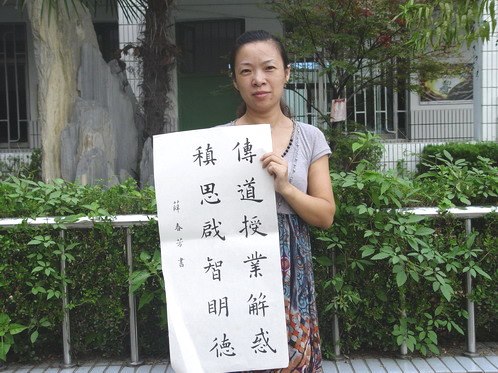 傳道授業解惑
稹思啟智明德
薛春芳書